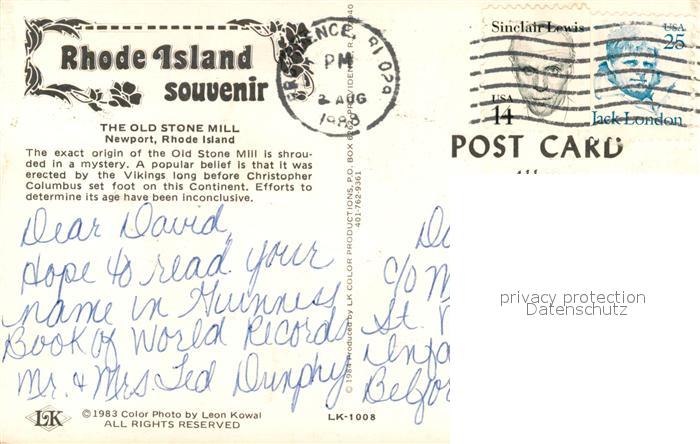 Rhode Island
souvenir
THE OLD STONE MILL
Newport, Rhode Island
The exact origin of the Old Stone Mill is shrou-
ded in a mystery. A popular belief is that it was
erected by the Vikings long before Christopher
Columbus set foot on this Continent. Efforts to
determine its age have been inconclusive.
Dear David,
Hope to read your
name in Guinness
Book of World Records
Mr. & Mrs Ted Dunphy
LK
©1983 Color Photo by Leon Kowal
ALL RIGHTS RESERVED
LK-1008
PROVIDENCE, RI 029
PM
2 AUG
1988
© 1984 Produced by LK COLOR PRODUCTIONS, P.O. BOX
PROVIDENCE, R.I.
401-762-9361
Sinclair Lewis
USA
14
USA
25
Jack London
POST CARD
C/O M
St.
Belfor
privacy protection
Datenschutz